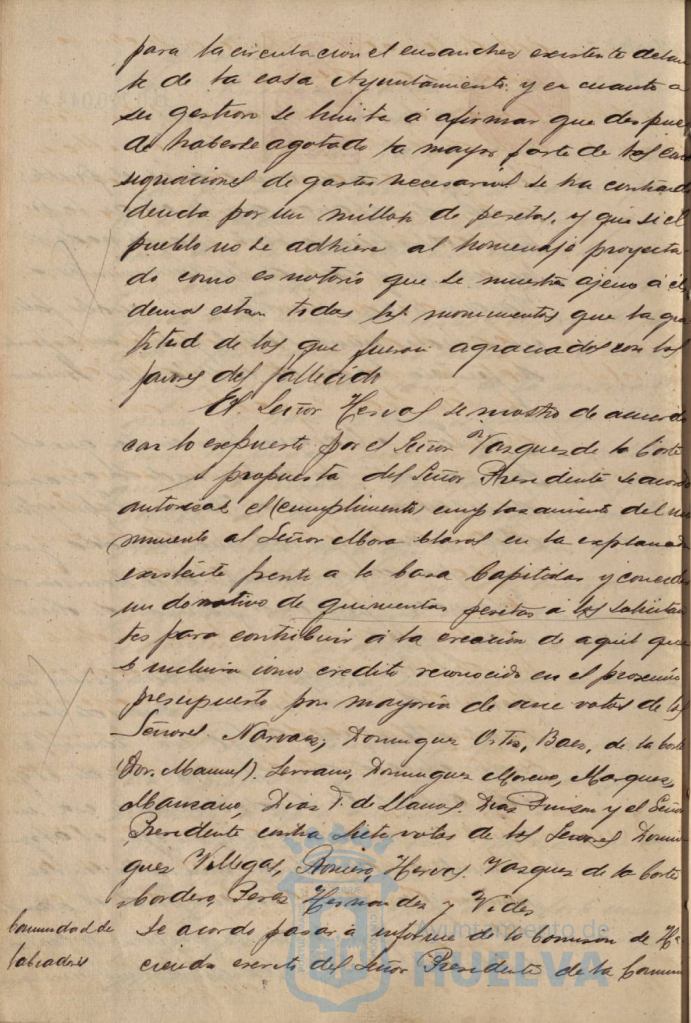 para la circulacion el ensanche existente delan
te de la casa Ayuntamiento y en cuanto a
su gestion se limita á afirmar que despues
de haberse agotado la mayor parte de las con
signaciones de gastos necesarios se ha contraido
deuda por un millon de pesetas, y que si el
pueblo no se adhiere al homenaje proyecta
do como es notorio que se muestra ajeno á él
demas estan todos los monumentos que la gra
titud de los que fueron agraciados con los
favores del fallecido
El Señor Hervas se mostro de acuerdo
con lo expuesto por el Señor Vazquez de la Corte
A propuesta del Señor Presidente se acordo
autorizar el (cumplimento) emplazamiento del mo
numento al Señor Mora Claros en la explanada
existente frente a la Casa Capitular y conceder
un donativo de quinientas pesetas á los solicitan
tes para contribuir á la creación de aquel que
se incluira como credito reconocido en el proximo
presupuesto por mayoria de once votos de los
Señores Narvaez, Dominguez Ortiz, Baez, de la Corte
(Don Manuel). Serrano, Dominguez Moreno, Marquez,
Manzano, Diaz F. de Llanos. Diaz Pinzon y el Señor
Presidente contra siete votos de los Señores Domin
guez Villegas, Romero, Hervas. Vazquez de la Corte
Cordero, Perez Hernandez y Vides
Comunidad de
Labradores
Se acordo pasar á informe de la Comision de Ha
cienda escrito del Señor Presidente de la Comuni
Ayuntamiento de
HUELVA